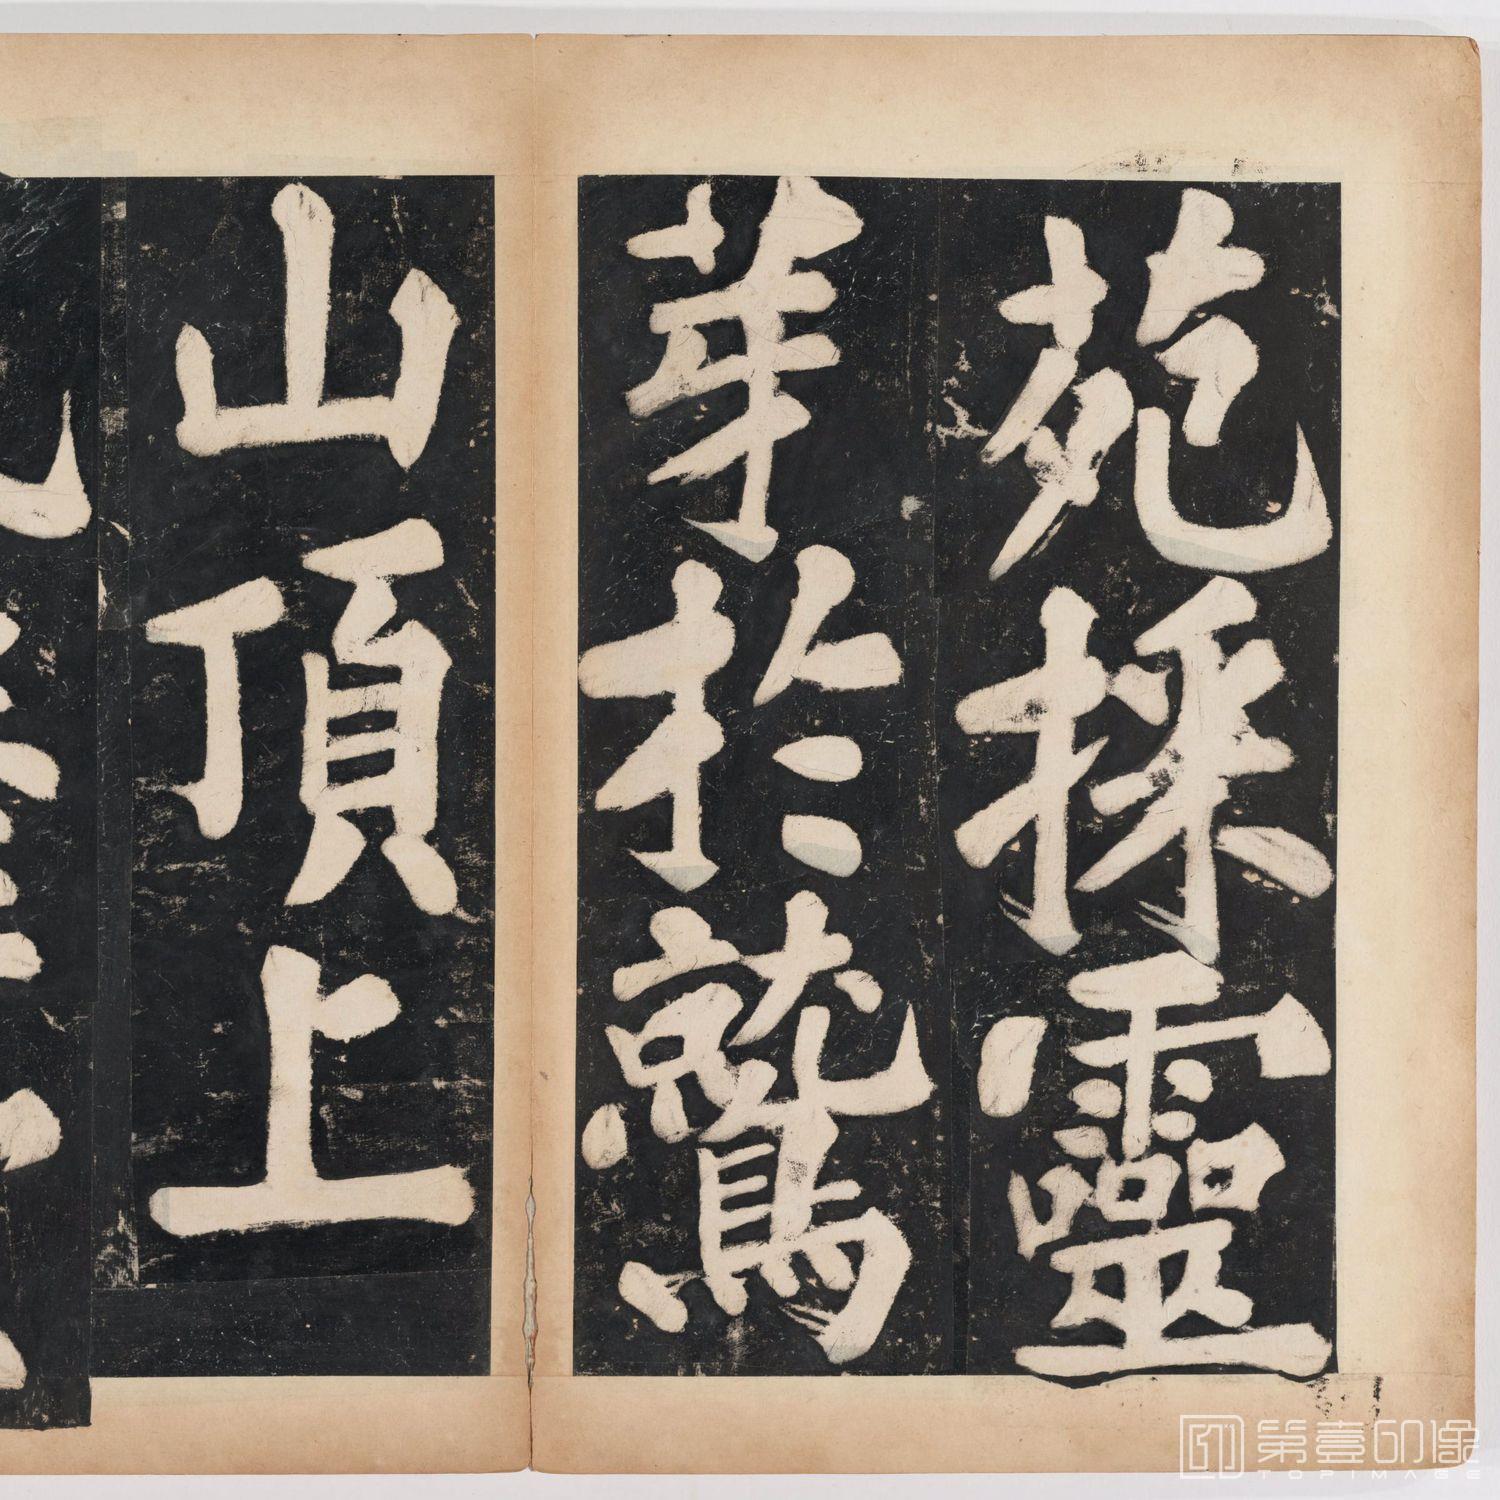 苑採靈
華於鷲
山頂上
第壹印像
TOPIMAGE